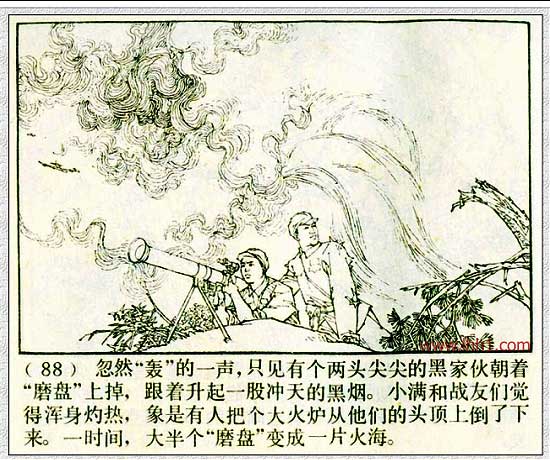 (88) 忽然“轰”的一声,只见有个两头尖尖的黑家伙朝着
“磨盘”上掉，跟着升起一股冲天的黑烟。小满和战友们觉
得浑身灼热，象是有人把个大火炉从他们的头顶上倒了下
来。一时间，大半个“磨盘”变成一片火海。